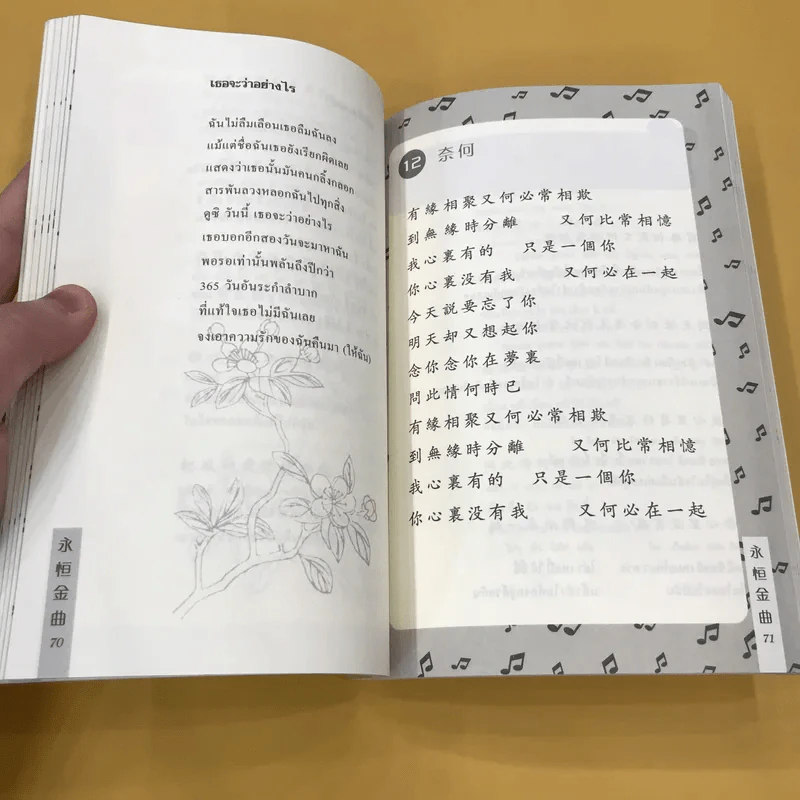 เธอจะว่าอย่างไร
ฉันไม่ลืมเลือนเธอลืมฉันลง
แม้แต่ชื่อฉันเธอยังเรียกผิดเลย
แสดงว่าเธอนั้นมันคนกลิ้งกลอก
สารพันลวงหลอกฉันไปทุกสิ่ง
ดูซิ วันนี้ เธอจะว่าอย่างไร
เธอบอกอีกสองวันจะมาหาฉัน
พอรอเท่านั้นพลันถึงปีกว่า
365 วันอันระกำลำบาก
ที่แท้ใจเธอไม่มีฉันเลย
จงเอาความรักของฉันคืนมา (ให้ฉัน)
永恒金曲
70
12 奈何
有緣相聚又何必常相欺
到無緣時分離 又何比常相憶
我心裏有的 只是一個你
你心裏没有我 又何必在一起
今天説要忘了你
明天却又想起你
念你念你在夢裏
問此情何時已
有緣相聚又何必常相欺
到無緣時分離 又何比常相憶
我心裏有的 只是一個你
你心裏没有我 又何必在一起
永恒金曲
71